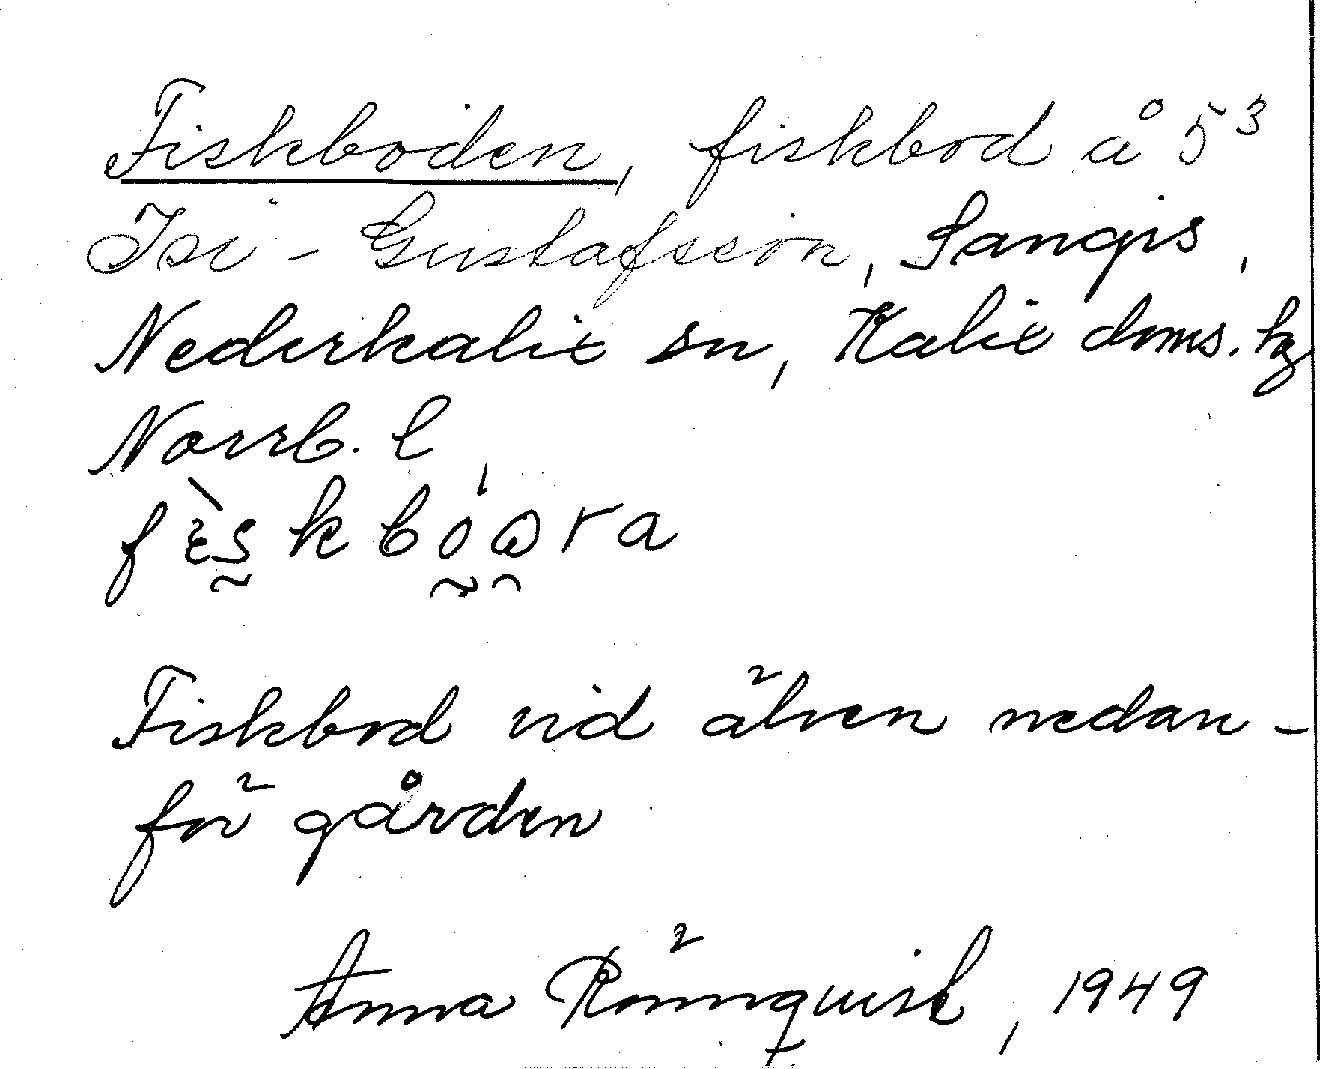 Fiskboden, fiskbod å 5³
Isi - Gustafsson, Sangis,
Nederkalix sn, Kalix doms. hg
Norrb. l
Fiskbod vid älven nedan-
för gården
Anna Rönnquist, 1949